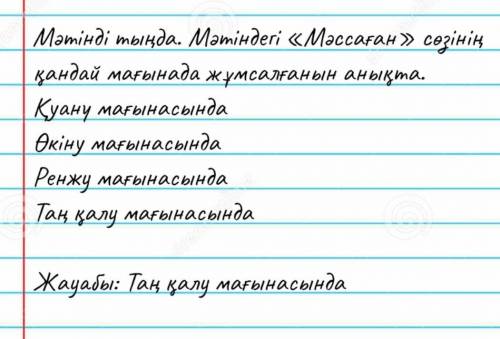 Мәтінді тыңда. Мәтіндегі «Мәссаған» сөзінің
қандай мағынада жұмсалғанын анықта.
Қуану мағынасында
Өкіну мағынасында
Ренжу мағынасында
Таң қалу мағынасында
Жауабы: Таң қалу мағынасында